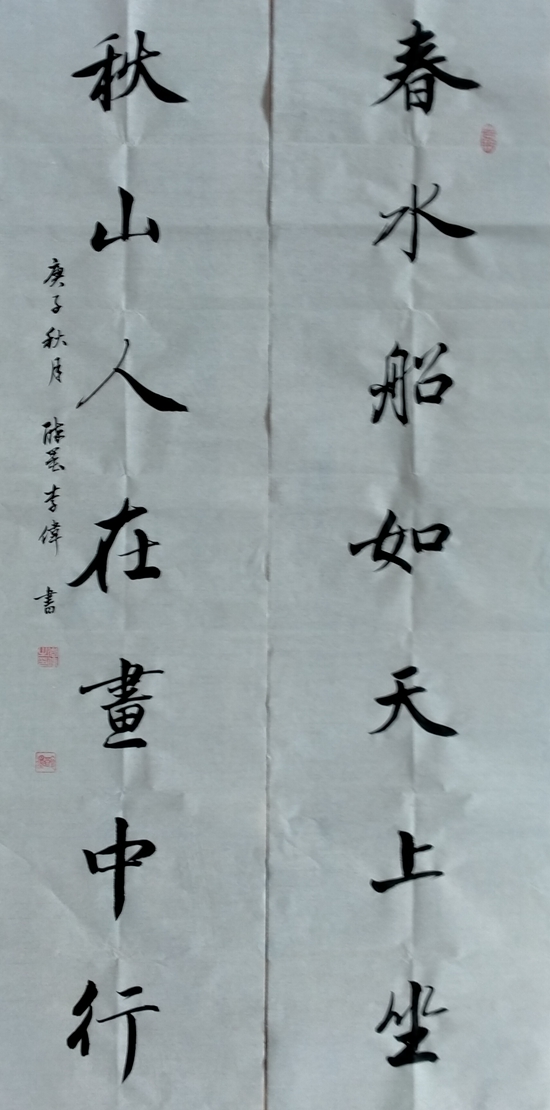 春水船如天上坐
秋山人在畫中行
庚子秋月 李偉 書